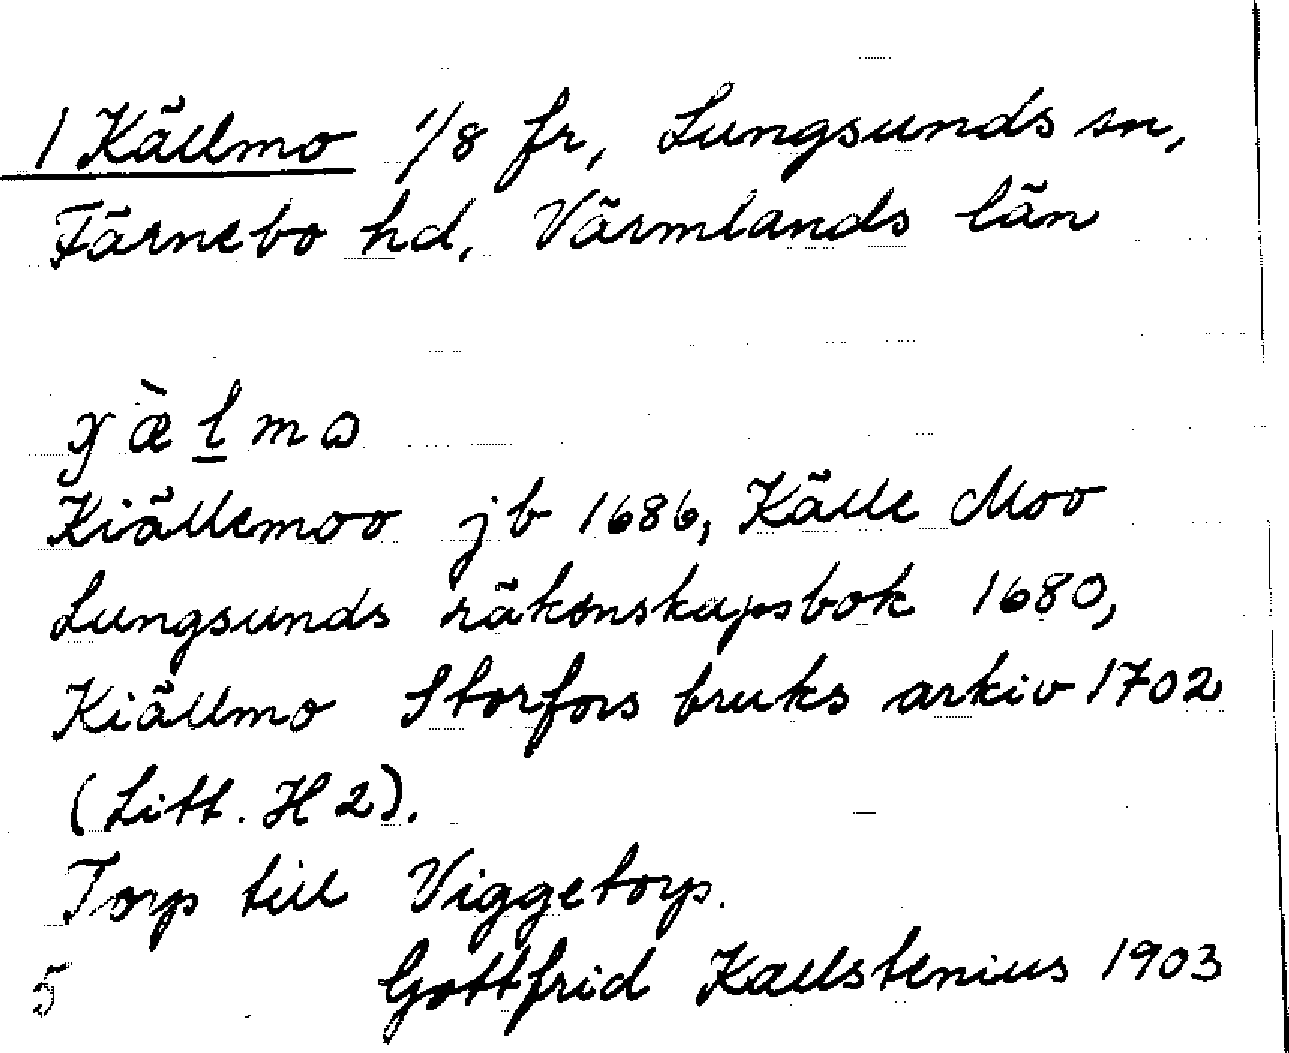 1 Källmo 1/8 fr, Lungsunds sn,
Färnebo hd, Värmlands län
Kiällemoo jb 1686, Källe Moo
Lungsunds räkenskapsbok 1680,
Kiällmo Storfors bruks arkiv 1702
(Litt. H 2).
Torp till Viggetorp.
5 Gottfrid Kallstenius 1903